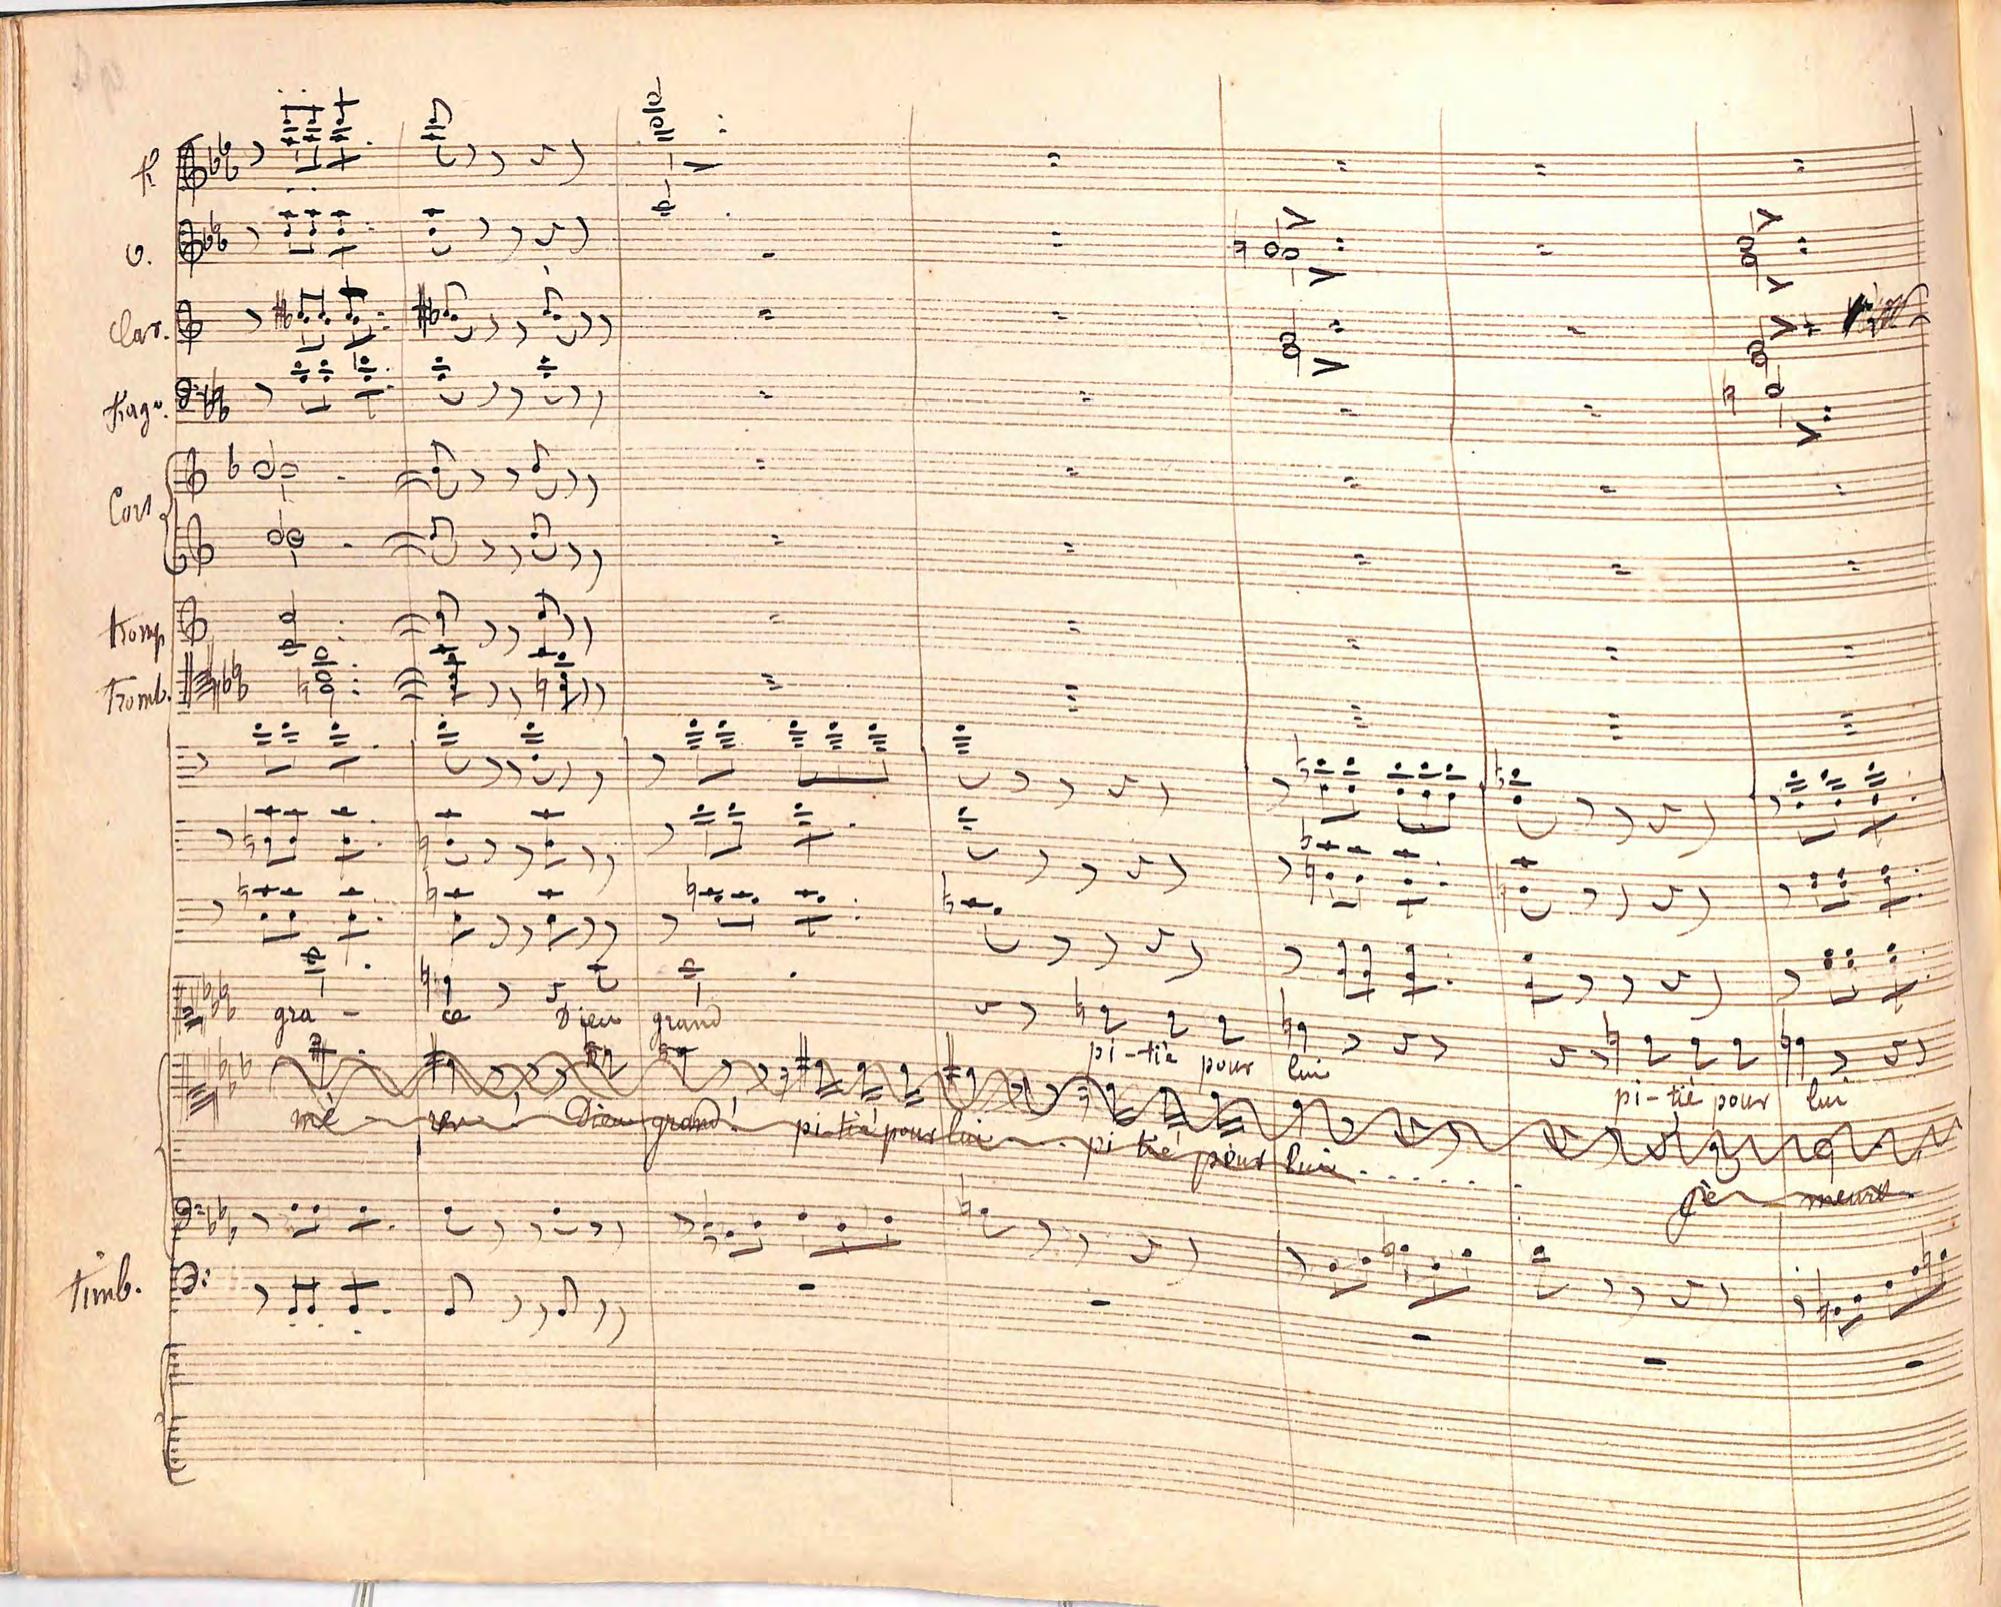 fl
O.
Clar.
Fag.
Cors
Tromp
Tromb.
gra - ce Dieu grand
pi-tié pour lui
pi-tié pour lui
mè - re! Dieu grand! pi-tié pour lui pi tié pour lui . . . . . .
je meurs
Timb.